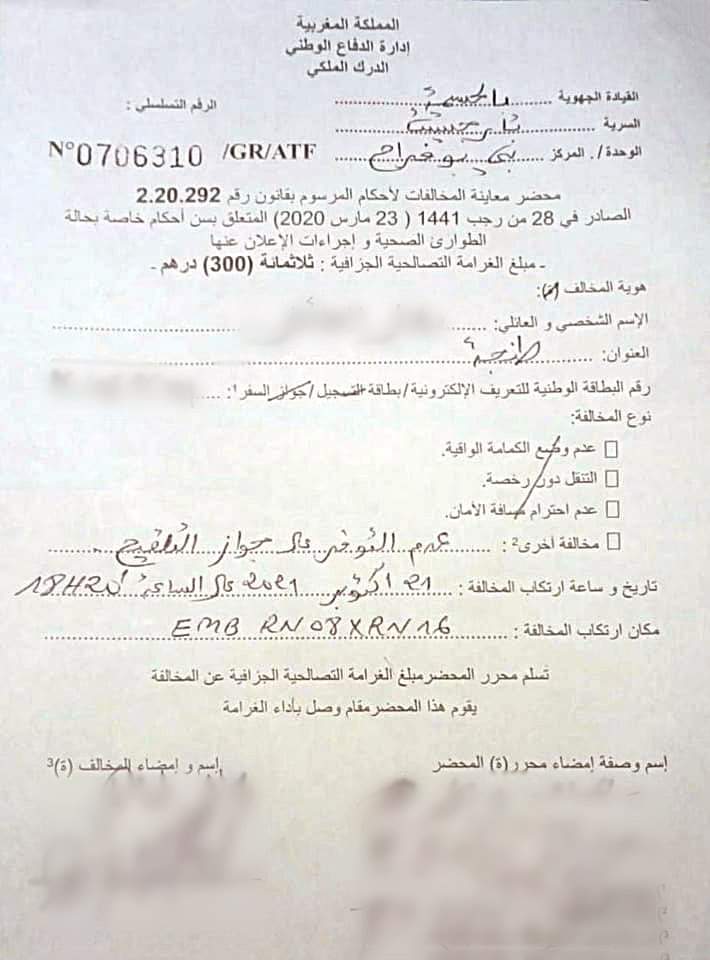 المملكة المغربية
إدارة الدفاع الوطني
الدرك الملكي
القيادة الجهوية ............ بالحسيمة
الرقم التسلسلي :
السرية ............
الوحدة /. المركز ...... بني بوفراح
N°0706310 /GR/ATF
محضر معاينة المخالفات لأحكام المرسوم بقانون رقم 2.20.292
الصادر في 28 من رجب 1441 ( 23 مارس 2020) المتعلق بسن أحكام خاصة بحالة
الطوارئ الصحية و إجراءات الإعلان عنها
ـ مبلغ الغرامة التصالحية الجزافية : ثلاثمائة (300) درهم ـ
هوية المخالف (ة):
الإسم الشخصي و العائلي: ............
العنوان: ............ طنجة
رقم البطاقة الوطنية للتعريف الإلكترونية/بطاقة التسجيل/جواز السفر¹: ....
نوع المخالفة:
□ عدم وضع الكمامة الواقية.
□ التنقل دون رخصة.
□ عدم احترام مسافة الأمان.
□ مخالفة أخرى² : ...... عدم التوفر على جواز التلقيح ......
تاريخ و ساعة ارتكاب المخالفة : 21 أكتوبر 2021 على الساعة 18H20
مكان ارتكاب المخالفة : EMB RN08XRN16
تسلم محرر المحضرمبلغ الغرامة التصالحية الجزافية عن المخالفة
يقوم هذا المحضرمقام وصل بأداء الغرامة
إسم وصفة إمضاء محرر(ة) المحضر
إسم و إمضاء المخالف (ة)³